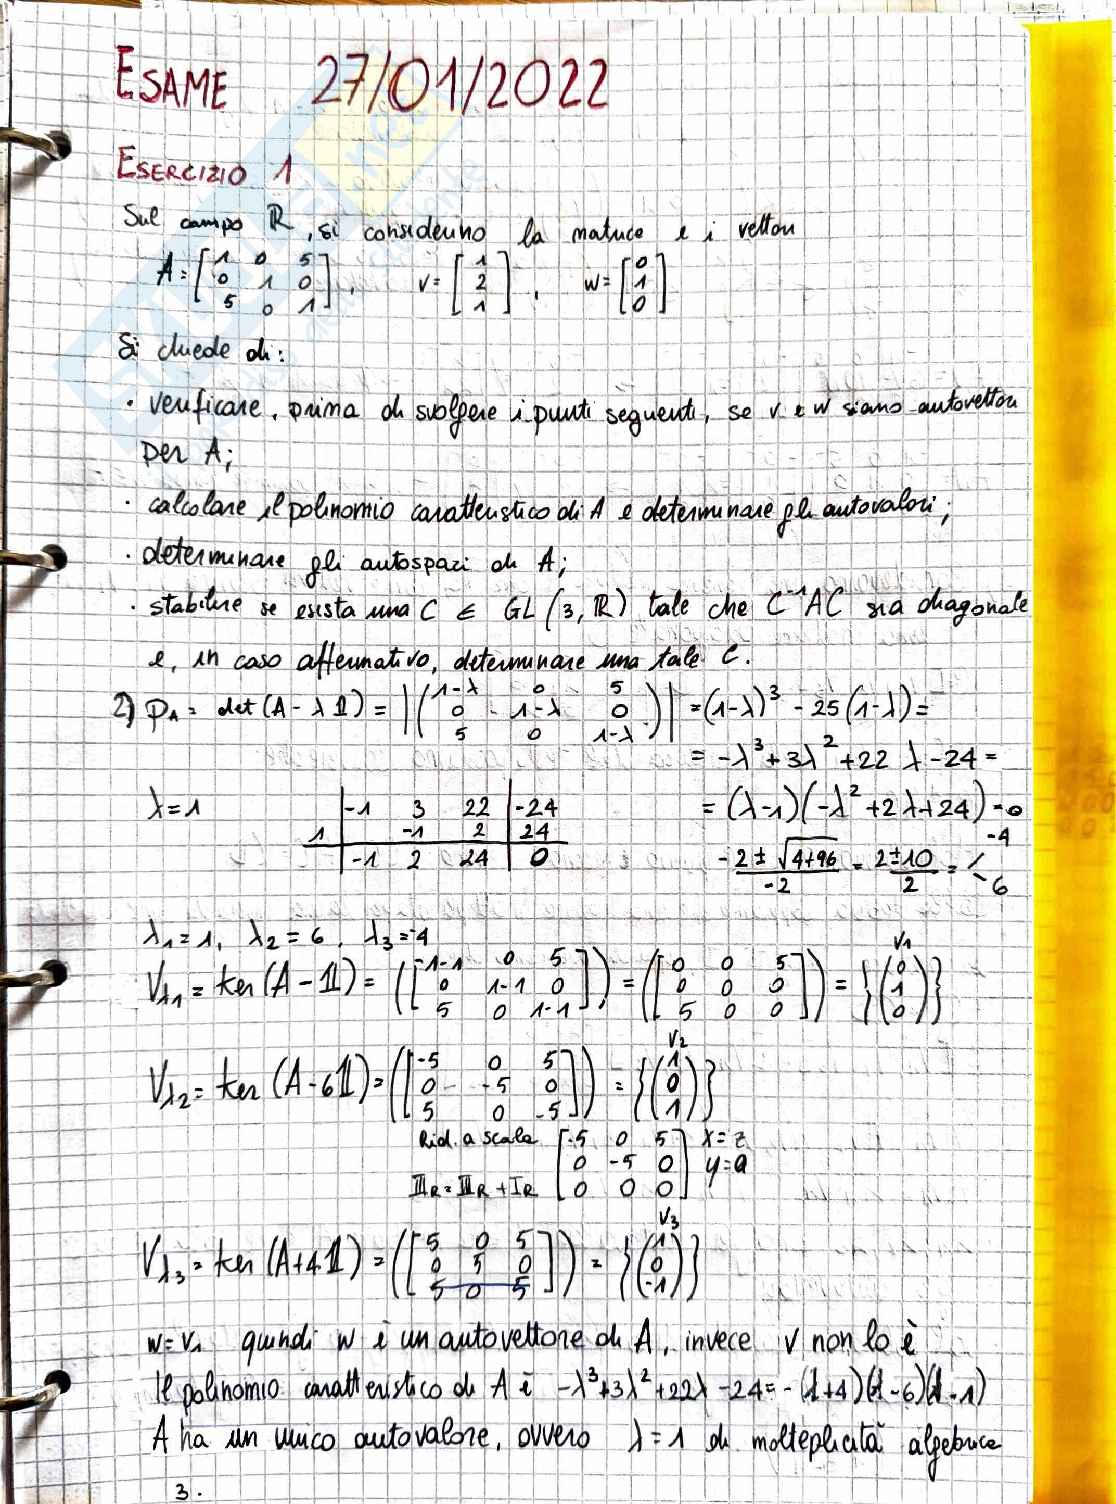 ESAME 27/01/2022
ESERCIZIO 1
Sul campo ℝ, si considerino la matrice e i vettori
A = [1 0 5; 0 1 0; 5 0 1], v = [1; 2; 1], w = [0; 1; 0]
Si chiede di:
· verificare, prima di svolgere i punti seguenti, se v e w siano autovettori
per A;
· calcolare il polinomio caratteristico di A e determinare gli autovalori;
· determinare gli autospazi di A;
· stabilire se esista una C ∈ GL(3, ℝ) tale che C⁻¹AC sia diagonale
e, in caso affermativo, determinare una tale C.
2) p_A = det(A - λ𝟙) = |(1-λ 0 5; 0 1-λ 0; 5 0 1-λ)| = (1-λ)³ - 25(1-λ) =
= -λ³ + 3λ² + 22λ - 24 =
λ=1 | -1 3 22 | -24 = (λ-1)(-λ² + 2λ + 24) = 0
1 | -1 2 | 24
| -1 2 24 | 0 -2 ± √4+96 / -2 = 2±10 / 2 = -4 6
λ₁ = 1, λ₂ = 6, λ₃ = -4
V_λ₁ = ker(A - 𝟙) = ([1-1 0 5; 0 1-1 0; 5 0 1-1]) = ([0 0 5; 0 0 0; 5 0 0]) = {v₁ (0; 1; 0)}
V_λ₂ = ker(A - 6𝟙) = ([-5 0 5; 0 -5 0; 5 0 -5]) = {v₂ (1; 0; 1)}
Rid. a scala [-5 0 5; 0 -5 0; 0 0 0] x = z y = 0
III_R = III_R + I_R
V_λ₃ = ker(A + 4𝟙) = ([5 0 5; 0 5 0; 5 0 5]) = {v₃ (1; 0; -1)}
w = v₁ quindi w è un autovettore di A, invece v non lo è
Il polinomio caratteristico di A è -λ³ + 3λ² + 22λ - 24 = -(λ+4)(λ-6)(λ-1)
A ha un unico autovalore, ovvero λ = 1 di molteplicità algebrica
3.